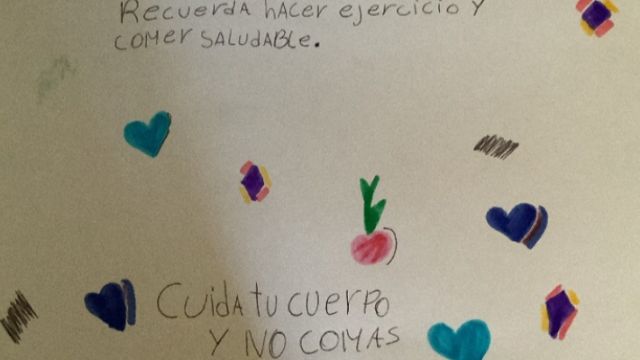 RecueRdA hAceR ejeRcicio Y
comer SALudABle.
CuidA tu cueRPo
Y NO COMAS